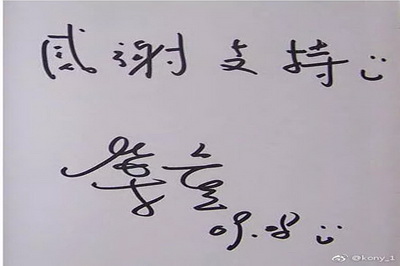 感谢支持
09.08
@kony_1